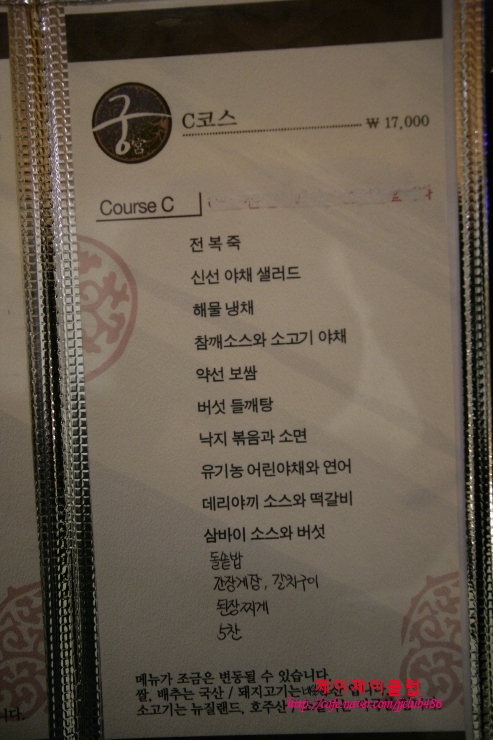 궁
宮
C코스 ₩ 17,000
Course C
전 복 죽
신선 야채 샐러드
해물 냉채
참깨소스와 소고기 야채
약선 보쌈
버섯 들깨탕
낙지 볶음과 소면
유기농 어린야채와 연어
데리야끼 소스와 떡갈비
삼바이 소스와 버섯
돌솥밥
간장게장, 갈치구이
된장찌게
5찬
메뉴가 조금은 변동될 수 있습니다
쌀, 배추는 국산 / 돼지고기는
소고기는 뉴질랜드, 호주산 /
제이제이클럽
니다.